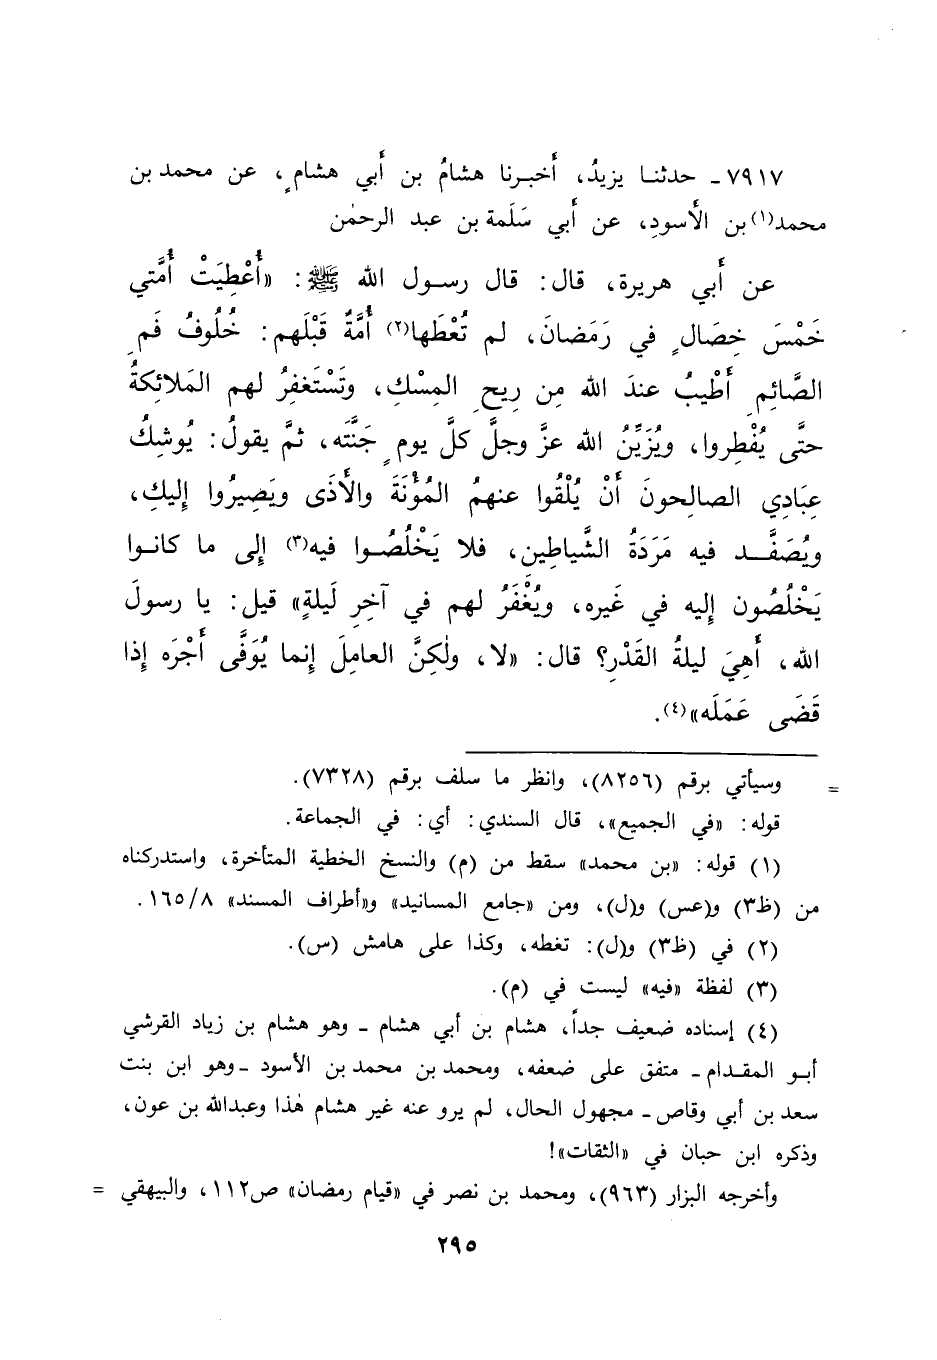 ٧٩١٧ـ حدثنـا يزيدُ، أَخبـرنا هشامُ بن أَبي هشامٍ، عن محمد بن
محمد(١) بن الأَسودِ، عن أَبي سَلَمة بن عبد الرحمٰن
عن أَبي هريرة، قال: قال رسول الله ﷺ: «أُعْطِيَتْ أُمَّتي
خَمْسَ خِصَالٍ في رَمَضانَ، لم تُعْطَها(٢) أُمَّةٌ قَبْلَهم: خُلُوفُ فَمِ
الصَّائِمِ أَطْيبُ عندَ الله مِن رِيحِ المِسْكِ، وتَسْتَغفِرُ لهم المَلائكةُ
حتَّى يُفْطِروا، ويُزَيِّنُ الله عزَّ وجلَّ كلَّ يومٍ جَنَّتَه، ثمَّ يقولُ: يُوشكُ
عِبَادِي الصالِحونَ أَنْ يُلْقُوا عنهمُ المُؤْنَةَ والأَذَى ويَصِيرُوا إِليكِ،
ويُصَفَّـد فيه مَرَدَةُ الشَّياطينِ، فلا يَخْلُصُـوا فيه(٣) إِلى ما كانـوا
يَخْلُصُون إِليه في غَيره، ويُغْفَرُ لهم في آخِرِ لَيلةٍ» قيل: يا رسولَ
الله، أَهِيَ ليلةُ القَدْرِ؟ قال: «لا، ولٰكِنَّ العامِلَ إِنما يُوَفَّى أَجْرَه إِذا
قَضَى عَمَلَه»(٤).
وسيأتي برقم (٨٢٥٦)، وانظر ما سلف برقم (٧٣٢٨). =
قوله: «في الجميع»، قال السندي: أي: في الجماعة.
(١) قوله: «بن محمد» سقط من (م) والنسخ الخطية المتأخرة، واستدركناه
من (ظ٣) و(عس) و(ل)، ومن «جامع المسانيد» و«أطراف المسند» ١٦٥/٨.
(٢) في (ظ٣) و(ل): تغطه، وكذا على هامش (س).
(٣) لفظة «فيه» ليست في (م).
(٤) إسناده ضعيف جداً، هشام بن أبي هشام ـ وهو هشام بن زياد القرشي
أبـو المقـدام ـ متفق على ضعفه، ومحمد بن محمد بن الأسود ـ وهو ابن بنت
سعد بن أبي وقاص ـ مجهول الحال، لم يرو عنه غير هشام هٰذا وعبدالله بن عون،
وذكره ابن حبان في «الثقات»!
وأخرجه البزار (٩٦٣)، ومحمد بن نصر في «قيام رمضان» ص١١٢، والبيهقي =
٢٩٥